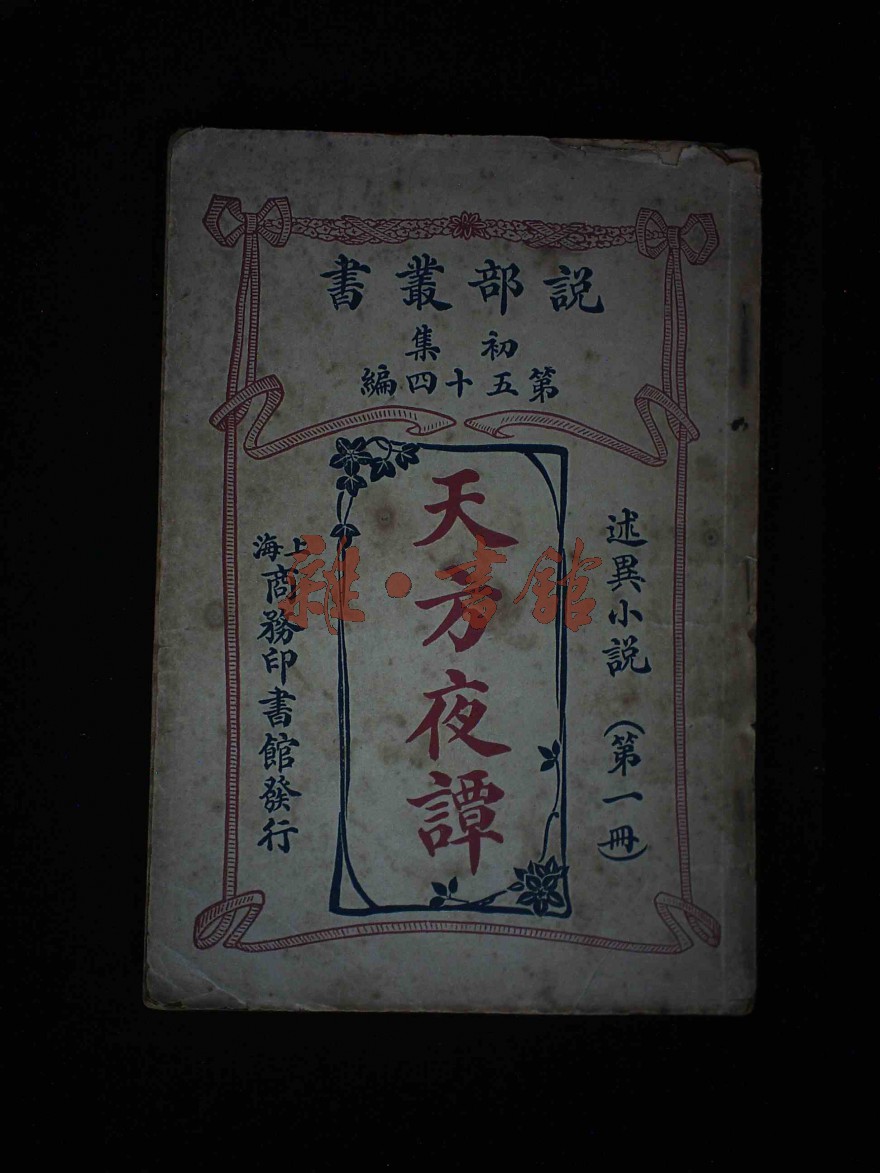 説部叢書
初集
第五十四編
述異小説（第一冊）
天方夜譚
上海商務印書館發行
雜·書館